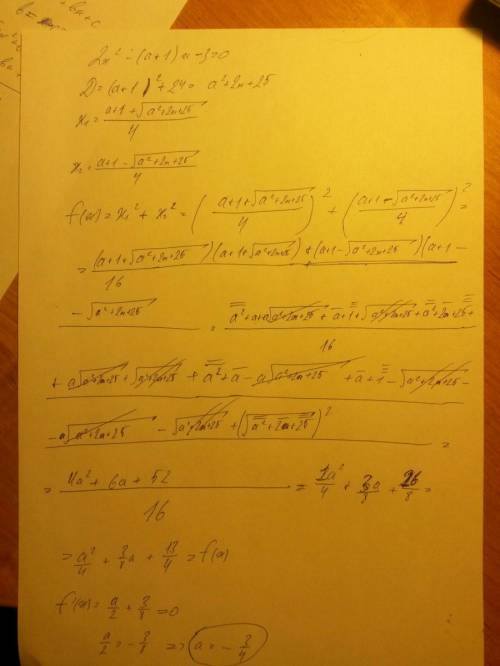 2x² - (a+1)x - 3 = 0
D = (a+1)² + 24 = a² + 2a + 25
x₁ = (a+1+√(a²+2a+25))/4
x₂ = (a+1-√(a²+2a+25))/4
f(a) = x₁² + x₂² = ((a+1+√(a²+2a+25))/4)² + ((a+1-√(a²+2a+25))/4)² =
= (a+1+√(a²+2a+25))(a+1+√(a²+2a+25)) + (a+1-√(a²+2a+25))(a+1-
16
-√(a²+2a+25) = a²+a+a√(a²+2a+25)+a+1+√(a²+2a+25)+a²+2a+25+
16
+ a√(a²+2a+25)+√(a²+2a+25)+a²+a-a√(a²+2a+25)+a+1-√(a²+2a+25)-
-a√(a²+2a+25) -√(a²+2a+25)+(√(a²+2a+25))² =
= (4a²+6a+52)/16 = 1a²/4 + 3a/8 + 26/8 =
= a²/4 + 3/8 a + 13/4 = f(a)
f'(a) = a/2 + 3/8 = 0
a/2 = -3/8 => a = -3/4